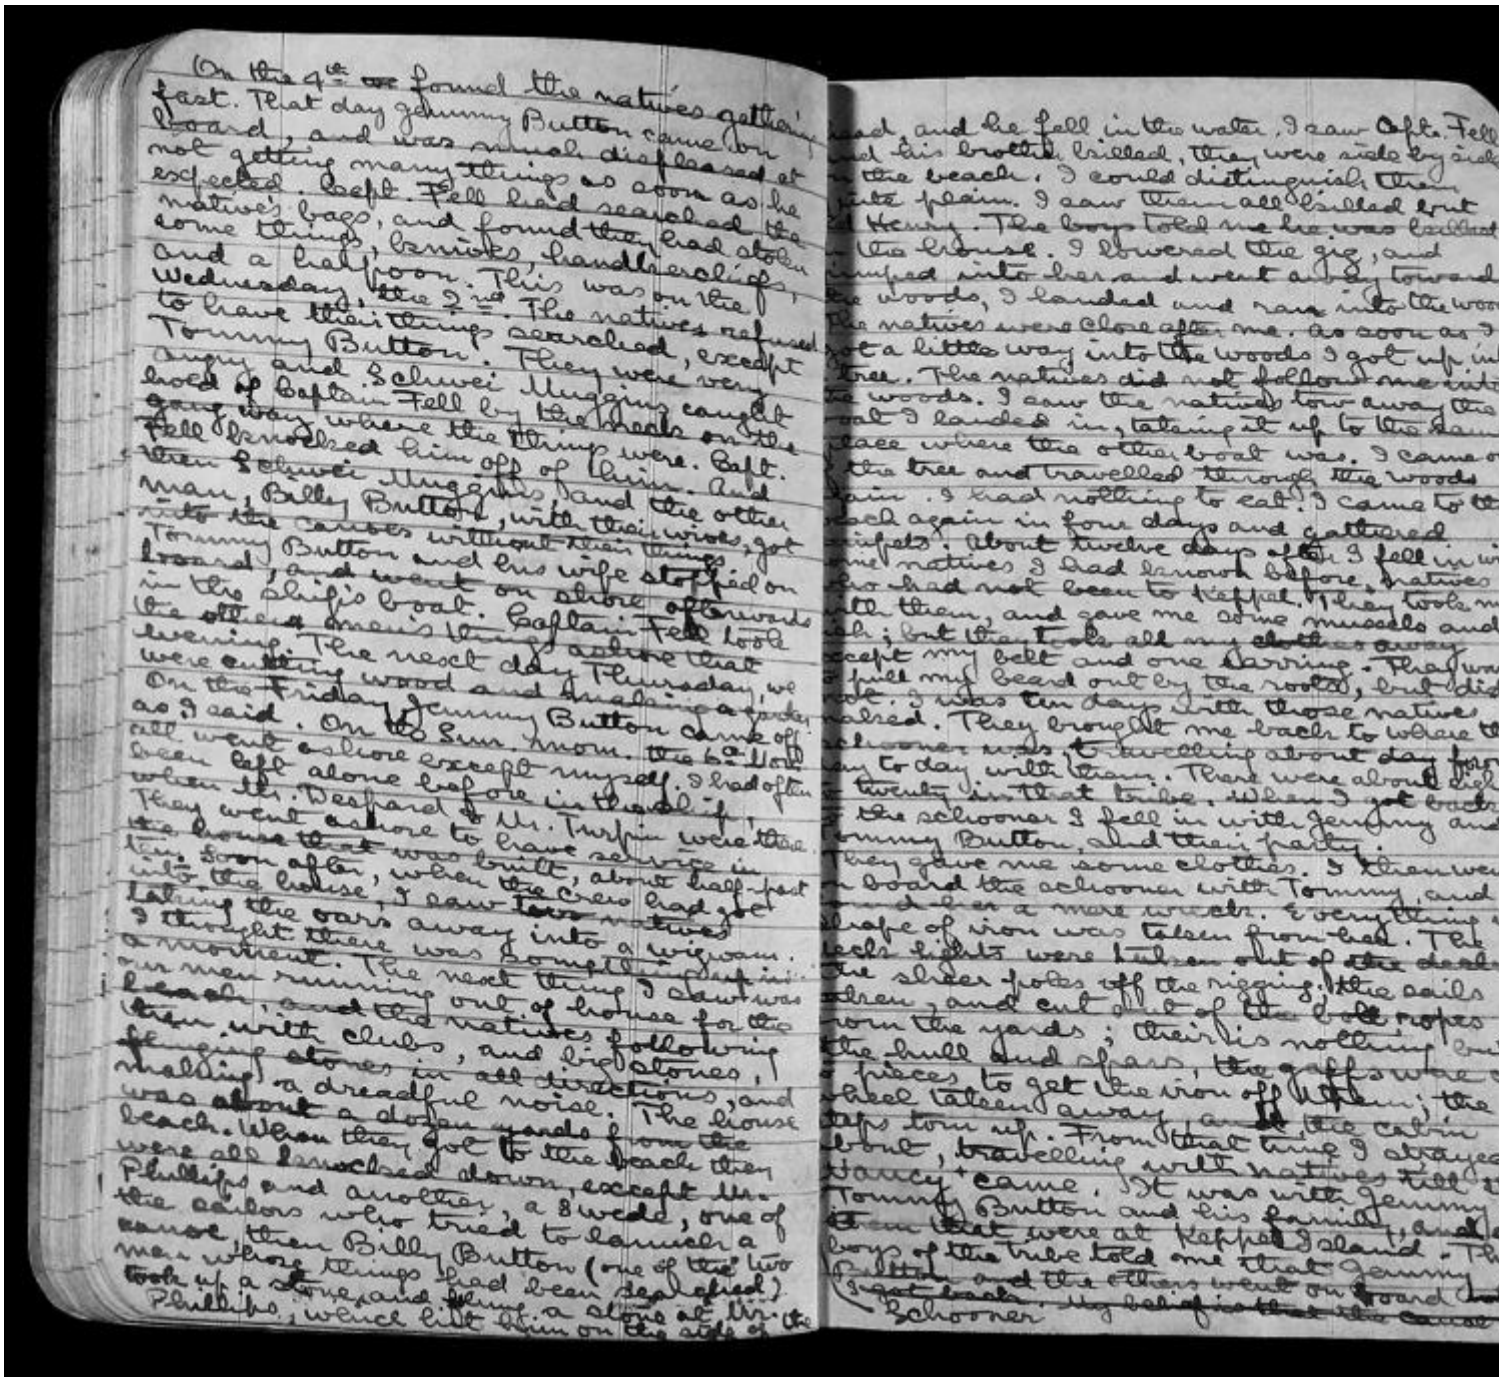 On the 4th we found the natives gathering
fast. That day Jemmy Button came on
board, and was much displeased at
not getting many things as soon as he
expected. Capt. Fell had searched the
native's bags, and found they had stolen
some things, knives, handkerchiefs,
and a harpoon. This was on the
Wednesday, the 2nd. The natives refused
to have their things searched, except
Tommy Button. They were very
angry and Schwei Muggins caught
hold of Captain Fell by the neck on the
gang way where the things were. Capt.
Fell knocked him off of him. And
then Schwei Muggins, and the other
man, Billy Button, with their wives, got
into the canoes without their things.
Tommy Button and his wife stopped on
board, and went on shore afterwards
in the ship's boat. Captain Fell took
the other men's things ashore that
evening. The next day Thursday, we
were cutting wood and making a garden
On the Friday Jemmy Button came off
as I said. On the Sun. morn. the 6th Nov.
all went ashore except myself. I had often
been left alone before in the ship,
when Mr. Despard & Mr. Turpin were there.
They went ashore to have service in
the house that was built, about half-past
ten. Soon after, when the crew had got
into the house, I saw two natives
taking the oars away into a wigwam.
I thought there was something up in
a moment. The next thing I saw was
our men running out of house for the
beach, and the natives following
them with clubs, and big stones,
flinging stones in all directions, and
making a dreadful noise. The house
was about a dozen yards from the
beach. When they got to the beach they
were all knocked down, except Mr.
Phillips and another, a Swede, one of
the sailors who tried to launch a
canoe, then Billy Button (one of the two
men whose things had been searched)
took up a stone, and flung a stone at Mr.
Phillips, which hit him on the side of the
head, and he fell in the water. I saw Capt. Fell
and his brother killed, they were side by side
the beach. I could distinguish them
plain. I saw them all killed but
Henry. The boys told me he was killed
the house. I lowered the gig, and
jumped into her and went away toward
the woods, I landed and ran into the woo
The natives were close after me. As soon as I
got a little way into the woods I got up in
tree. The natives did not follow me into
the woods. I saw the natives tow away the
boat I landed in, taking it up to the same
place where the other boat was. I came
the tree and travelled through the woods
again. I had nothing to eat. I came to the
beach again in four days and gathered
limpets. About twelve days after I fell in wi
some natives I had known before, natives
who had not been to Keppel. They took m
with them, and gave me some mussels and
fish; but they took all my clothes away
except my belt and one earring. They wan
pull my beard out by the roots, but did
not. I was ten days with those natives
naked. They brought me back to where th
schooner was, travelling about day from
day to day, with them. There were about eigh
twenty in that tribe. When I got back
the schooner I fell in with Jemmy and
Tommy Button, and their party.
They gave me some clothes. I then wen
on board the schooner with Tommy, and
found her a mere wreck. Everything
shape of iron was taken from her. The
deck lights were taken out of the deck
the sheer poles off the rigging, the sails
taken, and cut out of the bolt ropes
from the yards; their is nothing but
the hull and spars, the gaffs were
pieces to get the iron off them; the
wheel taken away, and the cabin
steps torn up. From that time I strayed
about, travelling with natives till
Nancy came. It was with Jemmy
Tommy Button and his family, and
them that were at Keppel Island. Th
boys of the tribe told me that Jemmy
Button and the others went on board
(I got back. My belief is that the canoe
Schooner